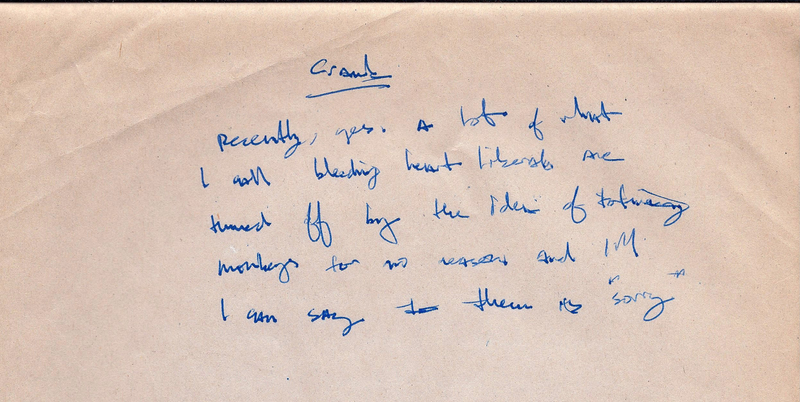 Crank
Recently, yes. A lot of what
I call bleeding heart liberals are
turned off by the idea of torturing
monkeys for no reason and all
I can say to them is "sorry"